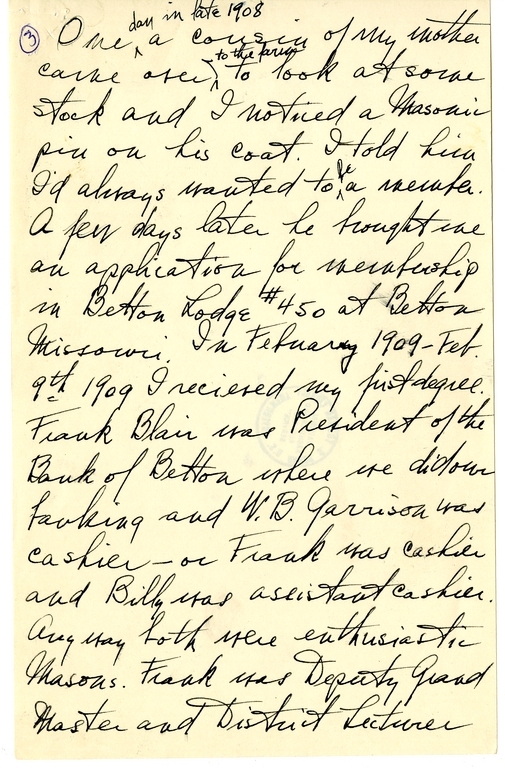 ③
day in late 1908
One, a cousin of my mother
to the farm
came over to look at some
stock and I noticed a Masonic
pin on his coat. I told him
be
I'd always wanted to a member.
A few days later he brought me
an application for membership
in Belton Lodge #450 at Belton
Missouri. In Febuary 1909-Feb.
9th 1909 I recieved my first degree.
Frank Blair was President of the
Bank of Belton where we did our
banking and W.B. Garrison was
cashier - or Frank was cashier
and Billy was assistant cashier.
Anyway both were enthusiastic
Masons. Frank was Deputy Grand
Master and District Lecturer